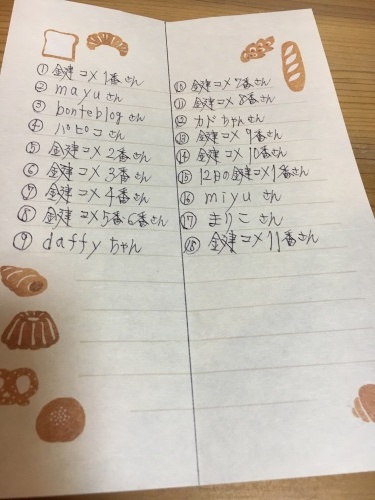 ① 鍵コメ1番さん
② mayuさん
③ bonteblogさん
④ パピコさん
⑤ 鍵コメ2番さん
⑥ 鍵コメ3番さん
⑦ 鍵コメ4番さん
⑧ 鍵コメ5番・6番さん
⑨ daffyちゃん
⑩ 鍵コメ7番さん
⑪ 鍵コメ8番さん
⑫ カドちゃんさん
⑬ 鍵コメ9番さん
⑭ 鍵コメ10番さん
⑮ 12日の鍵コメ1番さん
⑯ miyuさん
⑰ まりこさん
⑱ 鍵コメ11番さん